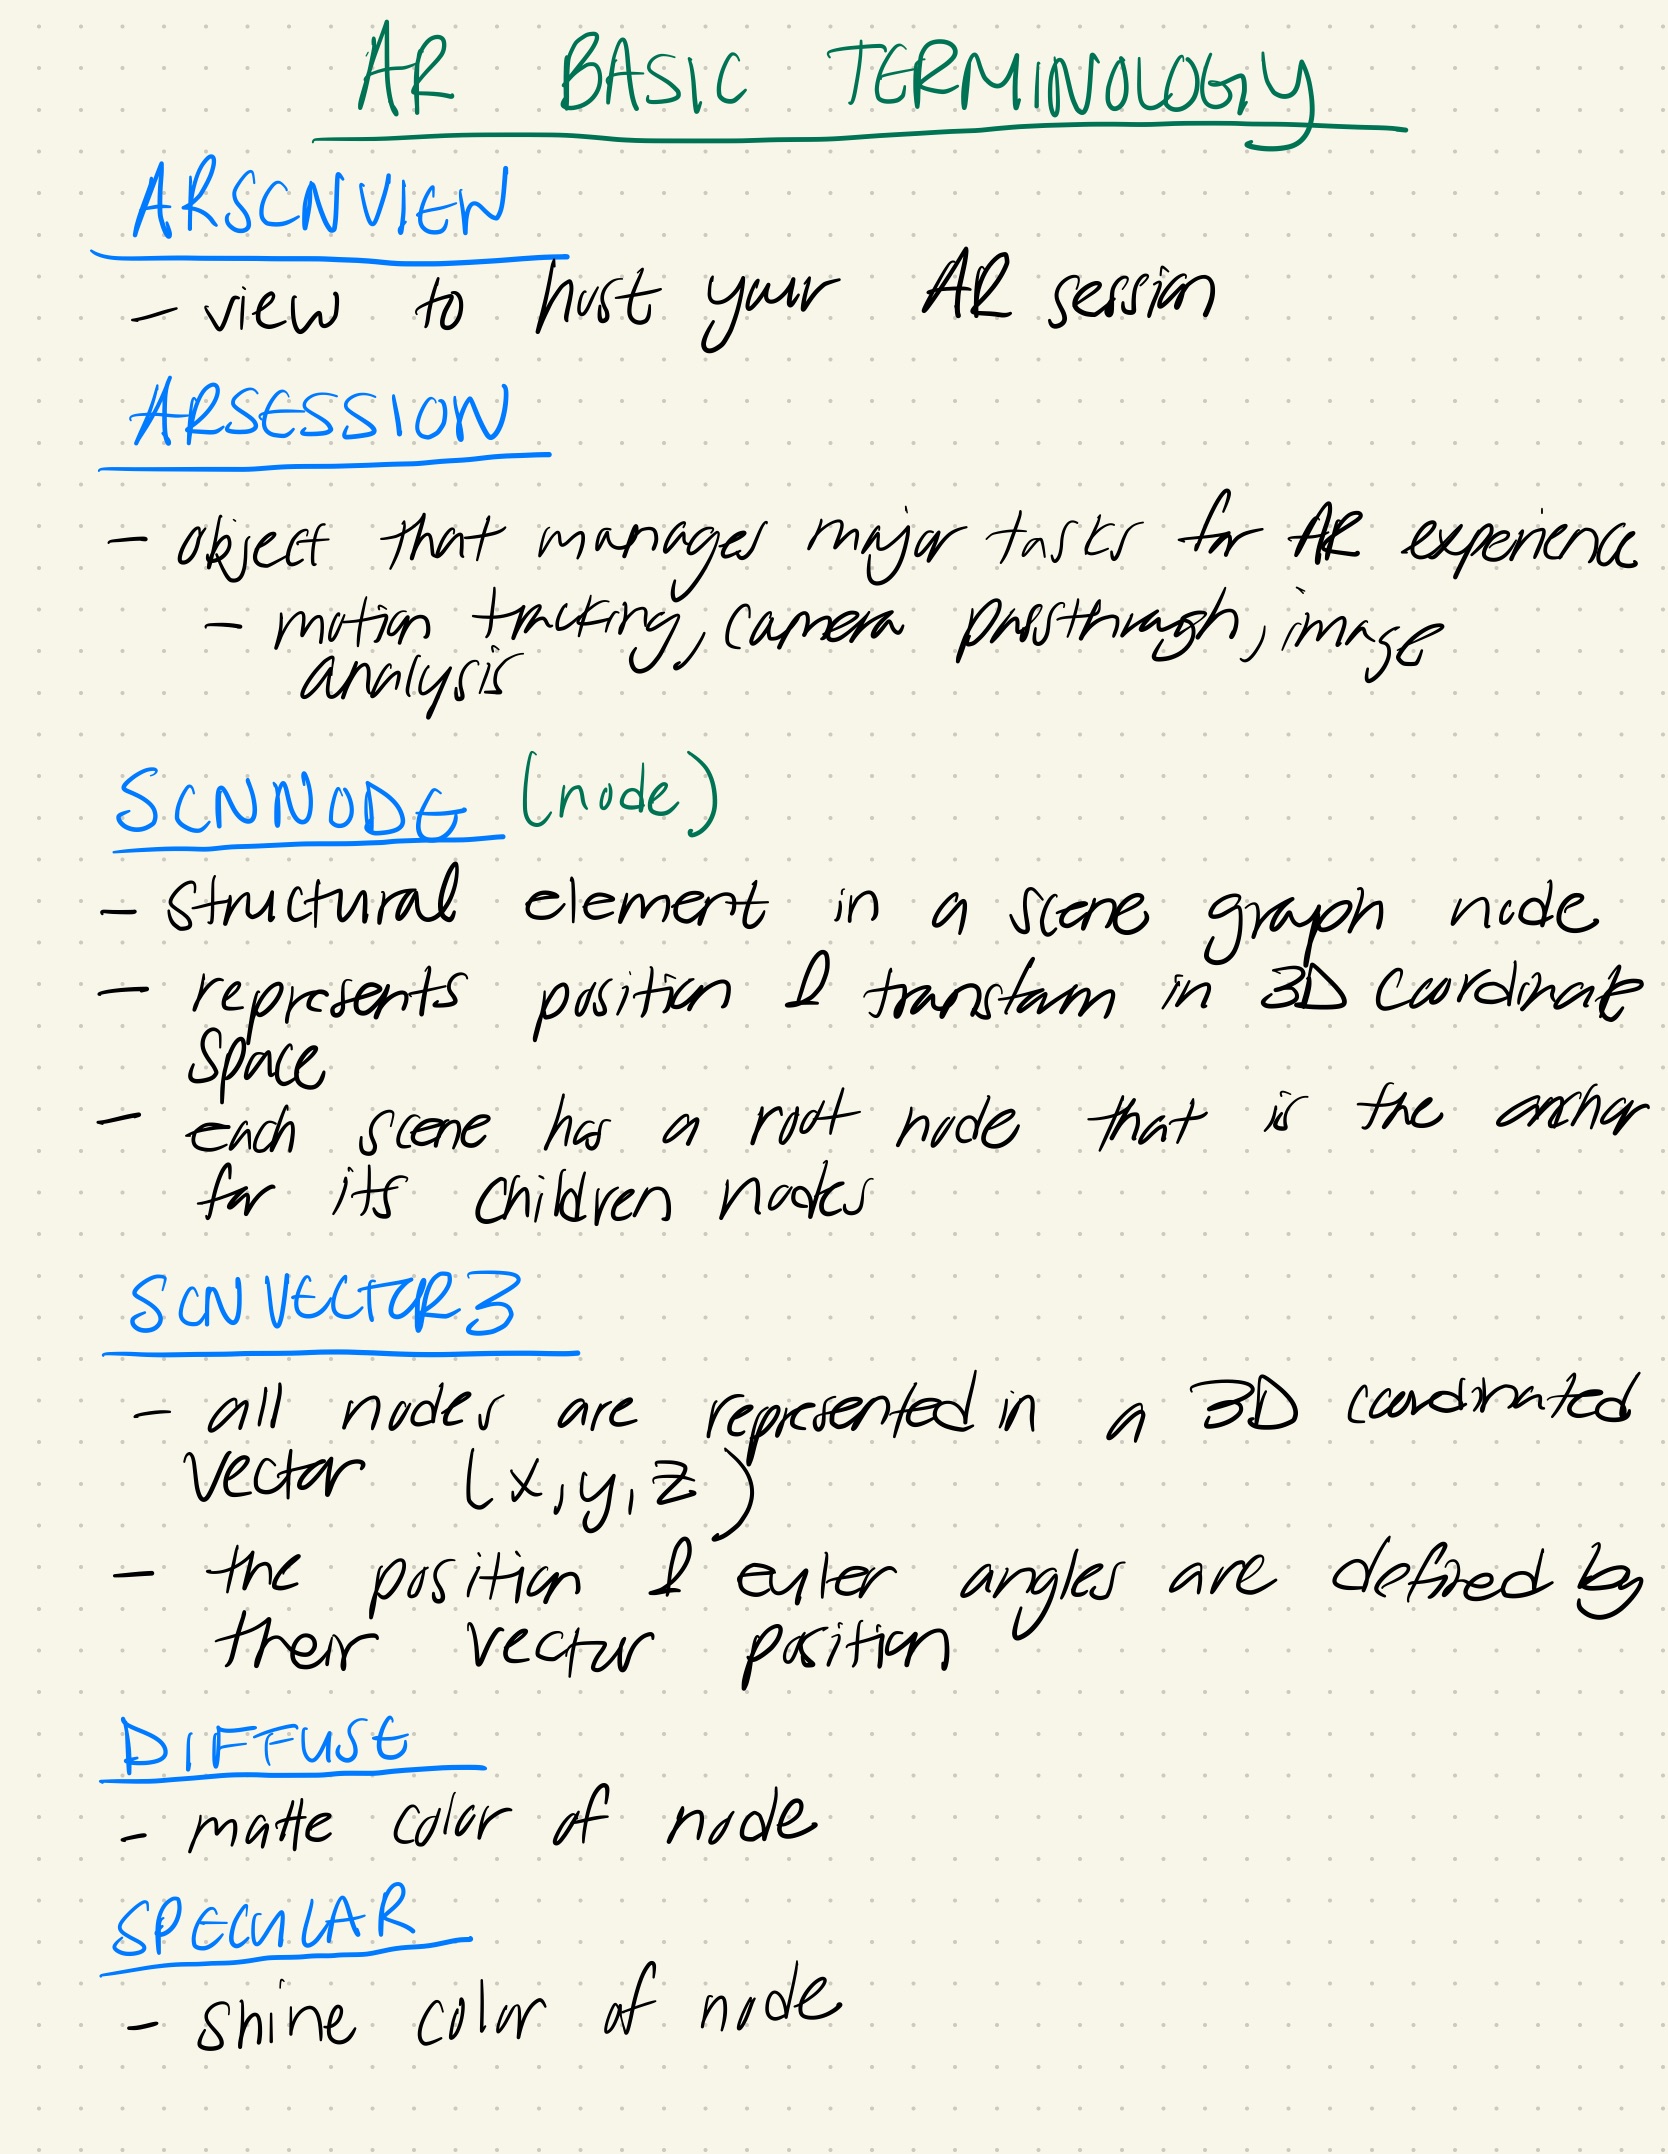 AR BASIC TERMINOLOGY
ARSCNVIEW
- view to host your AR session
ARSESSION
- object that manages major tasks for AR experience
- motion tracking, camera passthrough, image
analysis
SCNNODE (node)
- structural element in a scene graph node
- represents position & transform in 3D coordinate
space
- each scene has a root node that is the anchor
for its children nodes
SCNVECTOR3
- all nodes are represented in a 3D coordinated
vector (x,y,z)
- the position & euler angles are defined by
their vector position
DIFFUSE
- matte color of node
SPECULAR
- shine color of node